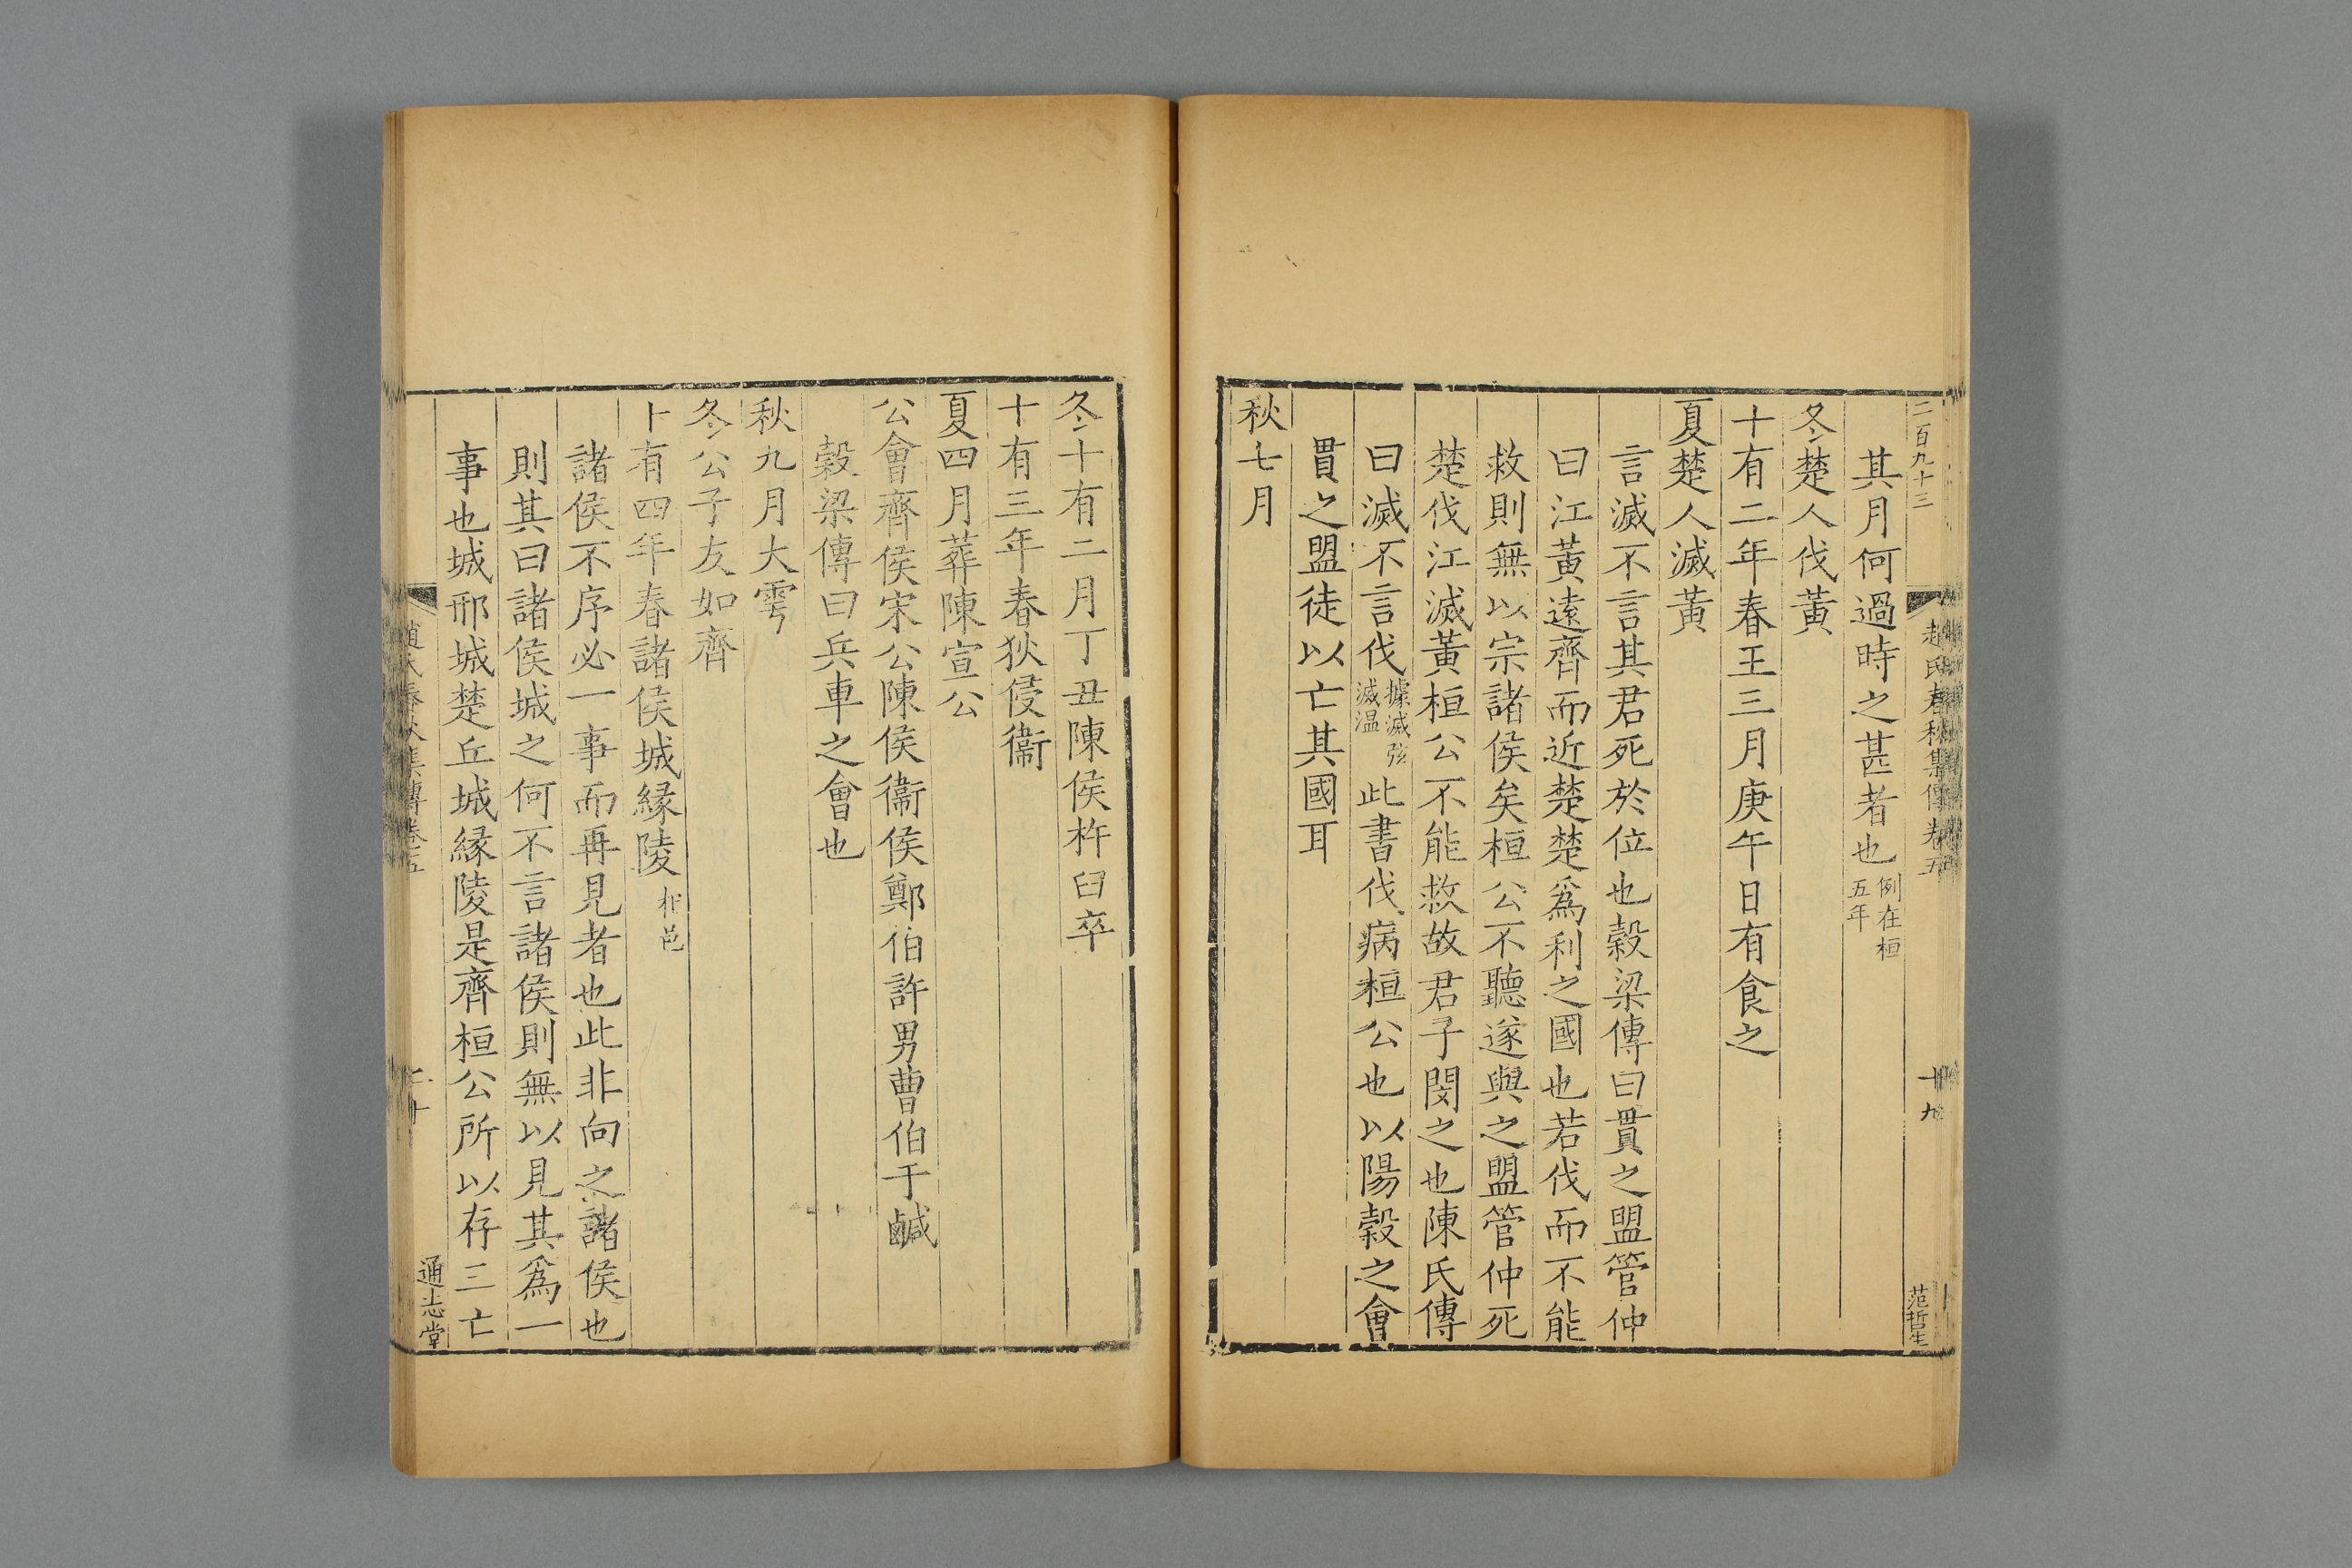 二百九十三
趙氏春秋集傳卷五
十九
范哲生
其月何過時之甚者也例在桓五年
冬楚人伐黃
十有二年春王三月庚午日有食之
夏楚人滅黃
言滅不言其君死於位也穀梁傳曰貫之盟管仲
曰江黃遠齊而近楚楚爲利之國也若伐而不能
救則無以宗諸侯矣桓公不聽遂與之盟管仲死
楚伐江滅黃桓公不能救故君子閔之也陳氏傳
曰滅不言伐據滅弦滅温此書伐病桓公也以陽穀之會
貫之盟徒以亡其國耳
秋七月
冬十有二月丁丑陳侯杵臼卒
十有三年春狄侵衞
夏四月葬陳宣公
公會齊侯宋公陳侯衞侯鄭伯許男曹伯于鹹
穀梁傳曰兵車之會也
秋九月大雩
冬公子友如齊
十有四年春諸侯城縁陵杞邑
諸侯不序必一事而再見者也此非向之諸侯也
則其曰諸侯城之何不言諸侯則無以見其爲一
事也城邢城楚丘城縁陵是齊桓公所以存三亡
趙氏春秋集傳卷五
二十
通志堂